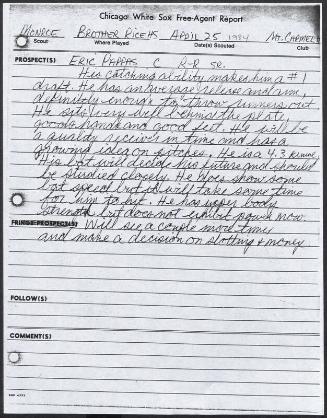 Chicago White Sox Free-Agent Report
MONROE BROTHER RICE HS APRIL 25 1984 Mt. CARMEL
Scout Where Played Date(s) Scouted Club
PROSPECT(S) ERIC PAPPAS C R-R SR.
His catching ability makes him a #1
draft. He has an average release and arm,
definitely enough to throw runners out.
He sits very well behind the plate,
good hands and good feet. He will be
a quality receiver in time and has a
good idea on pitches. He is a 4.3 runner.
His bat will decide his future and should
be studied closely. He does show some
bat speed but it will take some time
for him to hit. He has upper body
strength but does not exhibit power now.
FRINGE PROSPECT(S) Will see a couple more times
and make a decision on slotting & money
FOLLOW(S)
COMMENT(S)